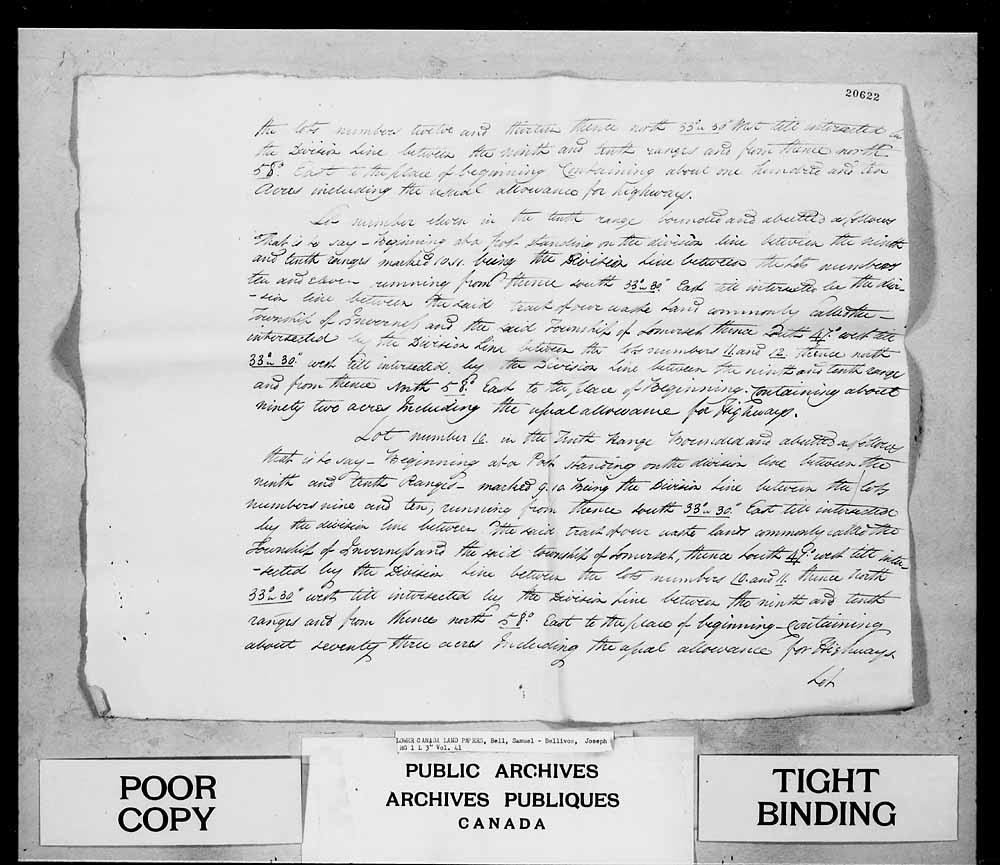 20622
the lots numbers twelve and thirteen thence north 33°.. 30" West till intersected by
the Division Line between the ninth and tenth ranges and from thence north
58°. East to the place of beginning Containing about one hundred and ten
Acres including the usual allowance for highways.
Lot number eleven in the tenth range bounded and abutted as follows
That is to say - Beginning at a post standing on the division line between the ninth
and tenth ranges marked 10.11. being the Division Line between the Lots numbers
ten and eleven running from thence south 33°.. 30. East till intersected by the divi-
-sion line between the said tract of our waste Land commonly called the -
Township of Inverness and the said Township of Somerset thence 47°. west till
intersected by the Division Line between the lots numbers 11 and 12. thence north
33°.. 30." west till intersected by the Division Line between the ninth and tenth range
and from thence North 58°. East to the place of Beginning. Containing about
ninety two acres Including the usual allowance for Highways.
Lot number 10. in the Tenth Range Bounded and abutted as follows
that is to say - Beginning at a Post standing on the division line between the
ninth and tenth Ranges - marked 9.10. being the Division Line between the lots
numbers nine and ten, running from thence south 33°.. 30." East till intersected
by the division line between the said tract of our waste lands commonly called the
Township of Inverness and the said township of Somerset, thence South 47°. west till inter-
-sected by the Division Line between the lots numbers 10. and 11. thence North
33°.. 30" west, till intersected by the Division Line between the ninth and tenth
ranges and from thence north 58°. East to the place of beginning - Containing
about seventy three acres Including the usual allowance for Highways.
Lot
LOWER CANADA LAND PAPERS, Bell, Samuel - Bellivos, Joseph
RG 1 L 3" Vol. 41
POOR
COPY
PUBLIC ARCHIVES
ARCHIVES PUBLIQUES
CANADA
TIGHT
BINDING